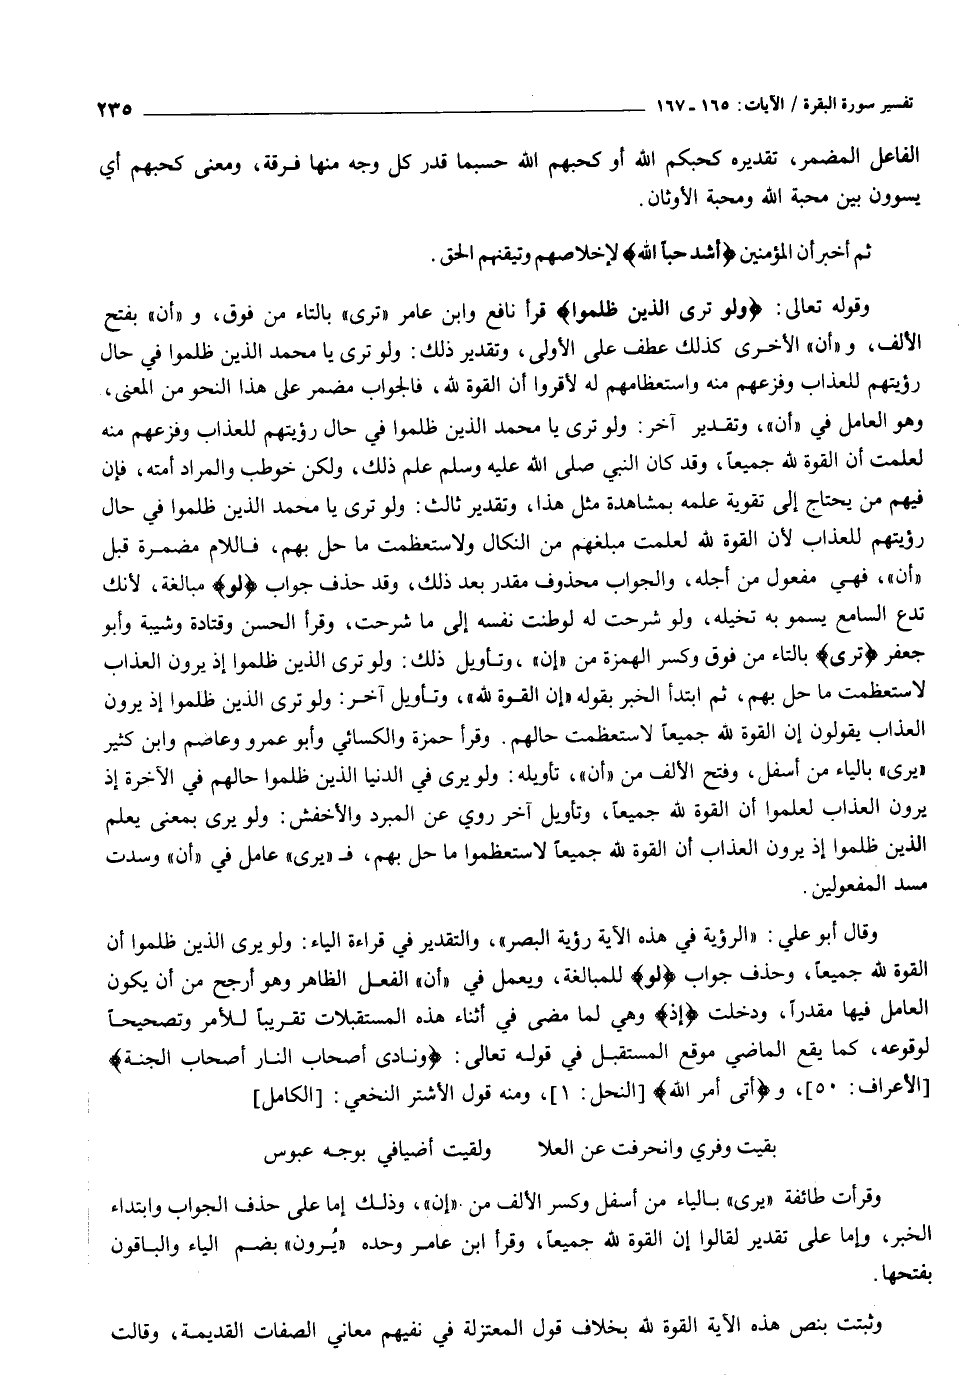 تفسير سورة البقرة / الآيات: ١٦٥ - ١٦٧ ٢٣٥
الفاعل المضمر، تقديره كحبكم الله أو كحبهم الله حسبما قدر كل وجه منها فرقة، ومعنى كحبهم أي
يسوون بين محبة الله ومحبة الأوثان.
ثم أخبر أن المؤمنين ﴿أشد حباً الله﴾ لإخلاصهم وتيقنهم الحق.
وقوله تعالى: ﴿ولو ترى الذين ظلموا﴾ قرأ نافع وابن عامر «ترى» بالتاء من فوق، و «أن» بفتح
الألف، و «أن» الأخرى كذلك عطف على الأولى، وتقدير ذلك: ولو ترى يا محمد الذين ظلموا في حال
رؤيتهم للعذاب وفزعهم منه واستعظامهم له لأقروا أن القوة لله، فالجواب مضمر على هذا النحو من المعنى،
وهو العامل في «أن»، وتقدير آخر: ولو ترى يا محمد الذين ظلموا في حال رؤيتهم للعذاب وفزعهم منه
لعلمت أن القوة لله جميعاً، وقد كان النبي صلى الله عليه وسلم علم ذلك، ولكن خوطب والمراد أمته، فإن
فيهم من يحتاج إلى تقوية علمه بمشاهدة مثل هذا، وتقدير ثالث: ولو ترى يا محمد الذين ظلموا في حال
رؤيتهم للعذاب لأن القوة لله لعلمت مبلغهم من النكال ولاستعظمت ما حل بهم، فاللام مضمرة قبل
«أن»، فهي مفعول من أجله، والجواب محذوف مقدر بعد ذلك، وقد حذف جواب ﴿لو﴾ مبالغة، لأنك
تدع السامع يسمو به تخيله، ولو شرحت له لوطنت نفسه إلى ما شرحت، وقرأ الحسن وقتادة وشيبة وأبو
جعفر ﴿ترى﴾ بالتاء من فوق وكسر الهمزة من «إن»، وتأويل ذلك: ولو ترى الذين ظلموا إذ يرون العذاب
لاستعظمت ما حل بهم، ثم ابتدأ الخبر بقوله «إن القوة لله»، وتأويل آخر: ولو ترى الذين ظلموا إذ يرون
العذاب يقولون إن القوة لله جميعاً لاستعظمت حالهم. وقرأ حمزة والكسائي وأبو عمرو وعاصم وابن كثير
«يرى» بالياء من أسفل، وفتح الألف من «أن»، تأويله: ولو يرى في الدنيا الذين ظلموا حالهم في الآخرة إذ
يرون العذاب لعلموا أن القوة لله جميعاً، وتأويل آخر روي عن المبرد والأخفش: ولو يرى بمعنى يعلم
الذين ظلموا إذ يرون العذاب أن القوة لله جميعاً لاستعظموا ما حل بهم، فـ «يرى» عامل في «أن» وسدت
مسد المفعولين.
وقال أبو علي: «الرؤية في هذه الآية رؤية البصر»، والتقدير في قراءة الياء: ولو يرى الذين ظلموا أن
القوة لله جميعاً، وحذف جواب ﴿لو﴾ للمبالغة، ويعمل في «أن» الفعل الظاهر وهو أرجح من أن يكون
العامل فيها مقدراً، ودخلت ﴿إذ﴾ وهي لما مضى في أثناء هذه المستقبلات تقريباً للأمر وتصحيحاً
لوقوعه، كما يقع الماضي موقع المستقبل في قوله تعالى: ﴿ونادى أصحاب النار أصحاب الجنة﴾
[الأعراف: ٥٠]، و ﴿أتى أمر الله﴾ [النحل: ١]، ومنه قول الأشتر النخعي: [الكامل]
بقيت وفري وانحرفت عن العلا ولقيت أضيافي بوجه عبوس
وقرأت طائفة «يرى» بالياء من أسفل وكسر الألف من «إن»، وذلك إما على حذف الجواب وابتداء
الخبر، وإما على تقدير لقالوا إن القوة لله جميعاً، وقرأ ابن عامر وحده «يُرون» بضم الياء والباقون
بفتحها.
وثبتت بنص هذه الآية القوة لله بخلاف قول المعتزلة في نفيهم معاني الصفات القديمة، وقالت